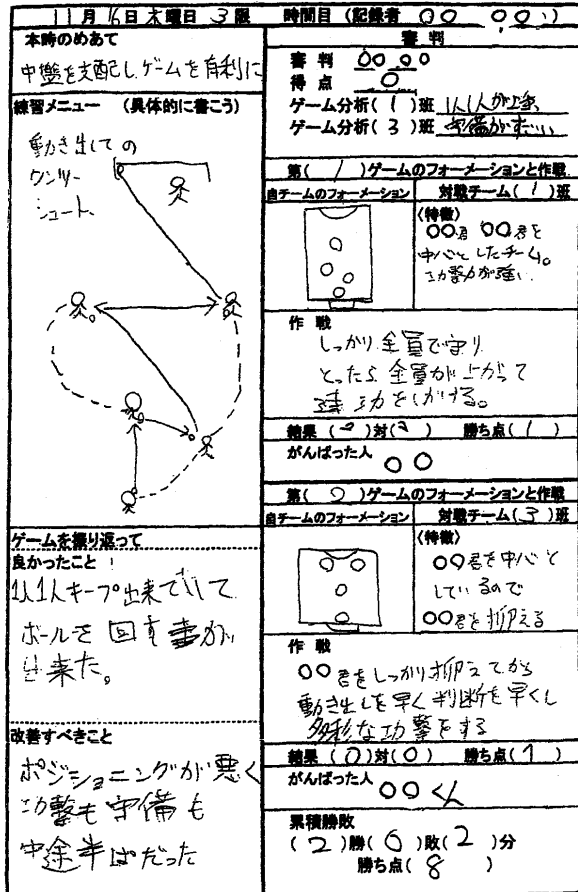 11月16日木曜日3限 時間目(記録者 〇〇 〇〇)
本時のめあて
中盤を支配しゲームを有利に
練習メニュー (具体的に書こう)
動き出しての
ワンツー
シュート
ゲームを振り返って
良かったこと!
1人1人キープ出来ていて
ボールを回す事が
出来た。
改善すべきこと
ポジショニングが悪く
功撃も守備も
中途半ぱだった
審判
審判 〇〇 〇〇
得点 〇
ゲーム分析(1)班 1人1人が上手
ゲーム分析(3)班 守備がすごい
第(1)ゲームのフォーメーションと作戦
自チームのフォーメーション 対戦チーム(1)班
(特徴)
〇〇君 〇〇君を
中心としたチーム。
功撃力が強い
作戦
しっかり全員で守り
とったら全員が上がって
速功をしかける。
結果(2)対(2) 勝ち点(1)
がんばった人
〇〇
第(2)ゲームのフォーメーションと作戦
自チームのフォーメーション 対戦チーム(3)班
(特徴)
〇〇君を中心と
しているので
〇〇君を抑える
作戦
〇〇君をしっかり抑えてから
動き出しを早く判断を早くし
多彩な功撃をする
結果(0)対(0) 勝ち点(1)
がんばった人
〇〇くん
累積勝敗
(2)勝(0)敗(2)分
勝ち点(8)